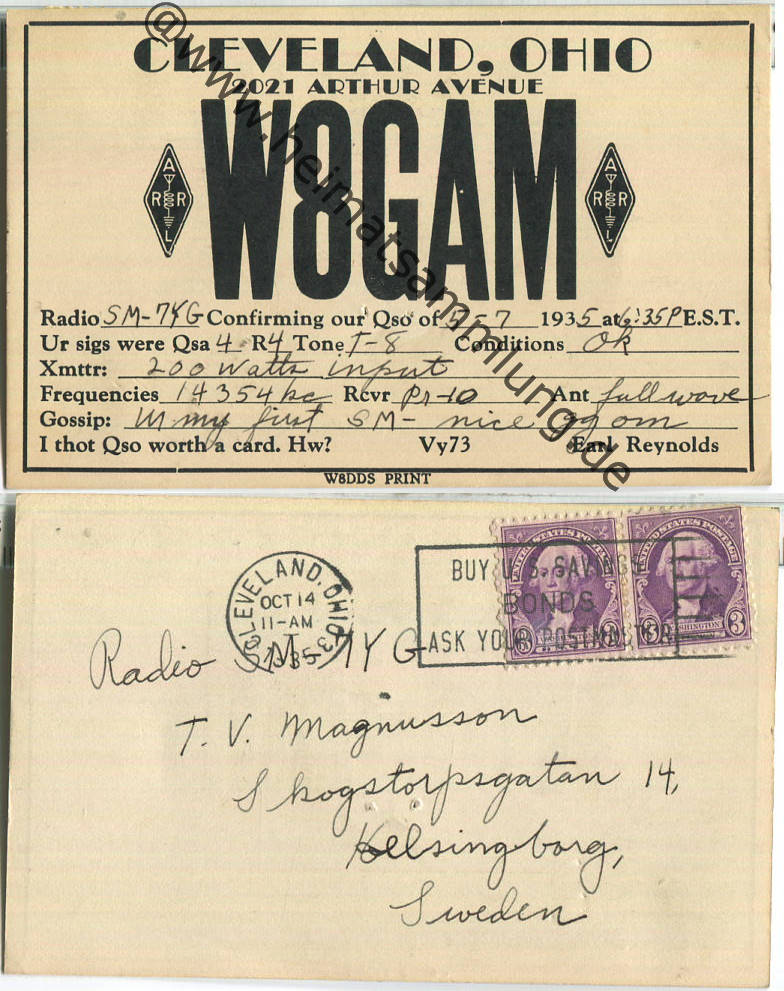 CLEVELAND, OHIO
2021 ARTHUR AVENUE
W8GAM
A R R L
A R R L
Radio SM-7YG Confirming our Qso of 5-7 1935 at 6:35P E.S.T.
Ur sigs were Qsa 4 R4 Tone T-8 Conditions Ok
Xmttr: 200 watts input
Frequencies 14354 kc Rcvr Pr-10 Ant full wave
Gossip: Ur my first SM- nice qso om
I thot Qso worth a card. Hw? Vy73 Earl Reynolds
W8DDS PRINT
@www.heimatsammlung.de
CLEVELAND, OHIO
OCT 14
11-AM
1935
BUY U.S. SAVINGS
BONDS
ASK YOUR POSTMASTER
UNITED STATES POSTAGE
3 3
UNITED STATES POSTAGE
WASHINGTON
3 3
Radio SM-7YG
T. V. Magnusson
Skogstorpsgatan 14,
Helsingborg,
Sweden